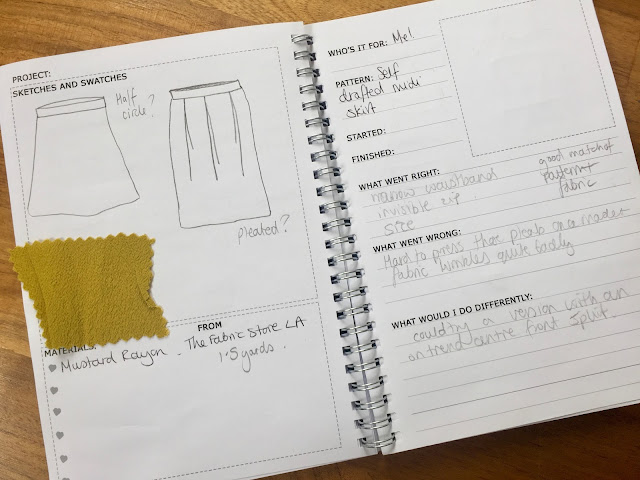 PROJECT:
SKETCHES AND SWATCHES
Half
circle?
pleated?
MATERIALS:
FROM
Mustard Rayon - The Fabric Store LA
1.5 yards.
WHO'S IT FOR: Mel
PATTERN: Self
drafted midi
skirt
STARTED:
FINISHED:
WHAT WENT RIGHT:
narrow waistband
invisible zip
size
good match of
pattern +
fabric
WHAT WENT WRONG:
Hard to press the pleats on a
fabric wrinkles quite badly
WHAT WOULD I DO DIFFERENTLY:
could try a version with an
on trend centre front split